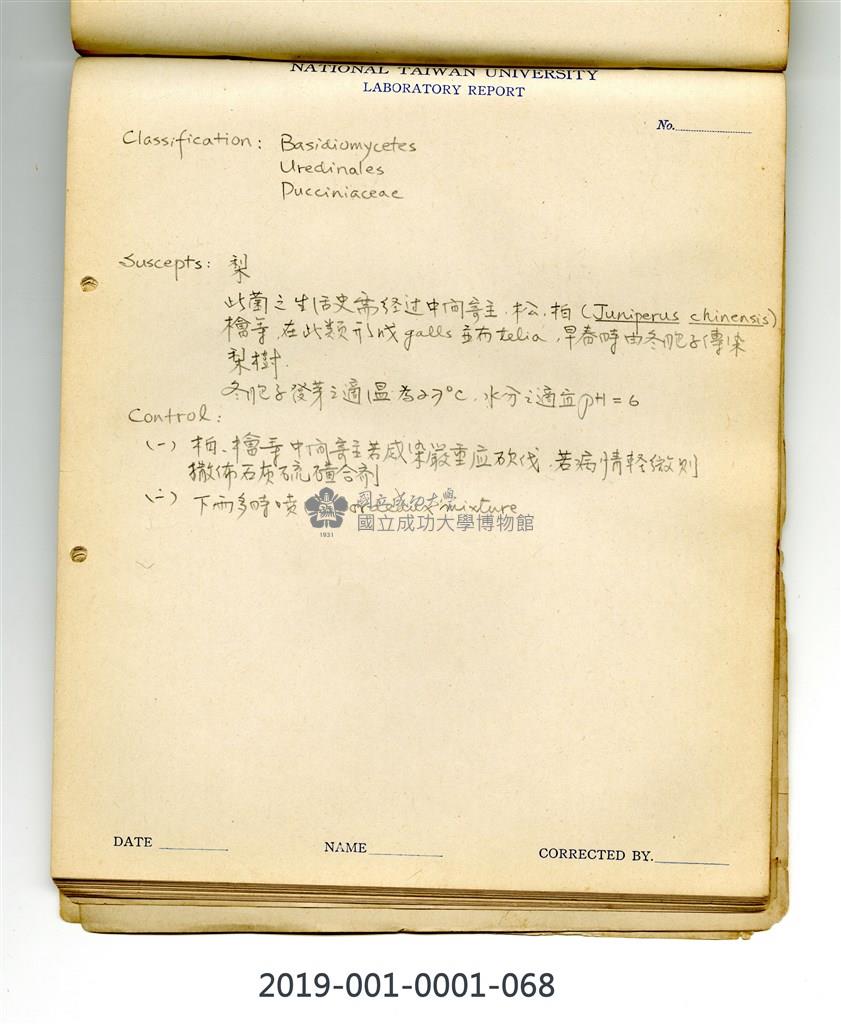 NATIONAL TAIWAN UNIVERSITY
LABORATORY REPORT
No.
Classification: Basidiomycetes
Uredinales
Pucciniaceae
Suscepts: 梨
此菌之生活史需经过中间寄主.松.柏 (Juniperus chinensis)
檜等,在此類形成galls 並有telia,早春時由冬胞子傳染
梨樹.
冬胞子發芽之適温為27°C.水分之適宜pH=6
Control:
(一) 柏、檜等中间寄主若感染嚴重应砍伐.若病情轻微则
撒佈石灰硫磺合剂
(二) 下雨多時喷 mixture
國立成功大學
國立成功大學博物館
1931
DATE
NAME
CORRECTED BY.
2019-001-0001-068